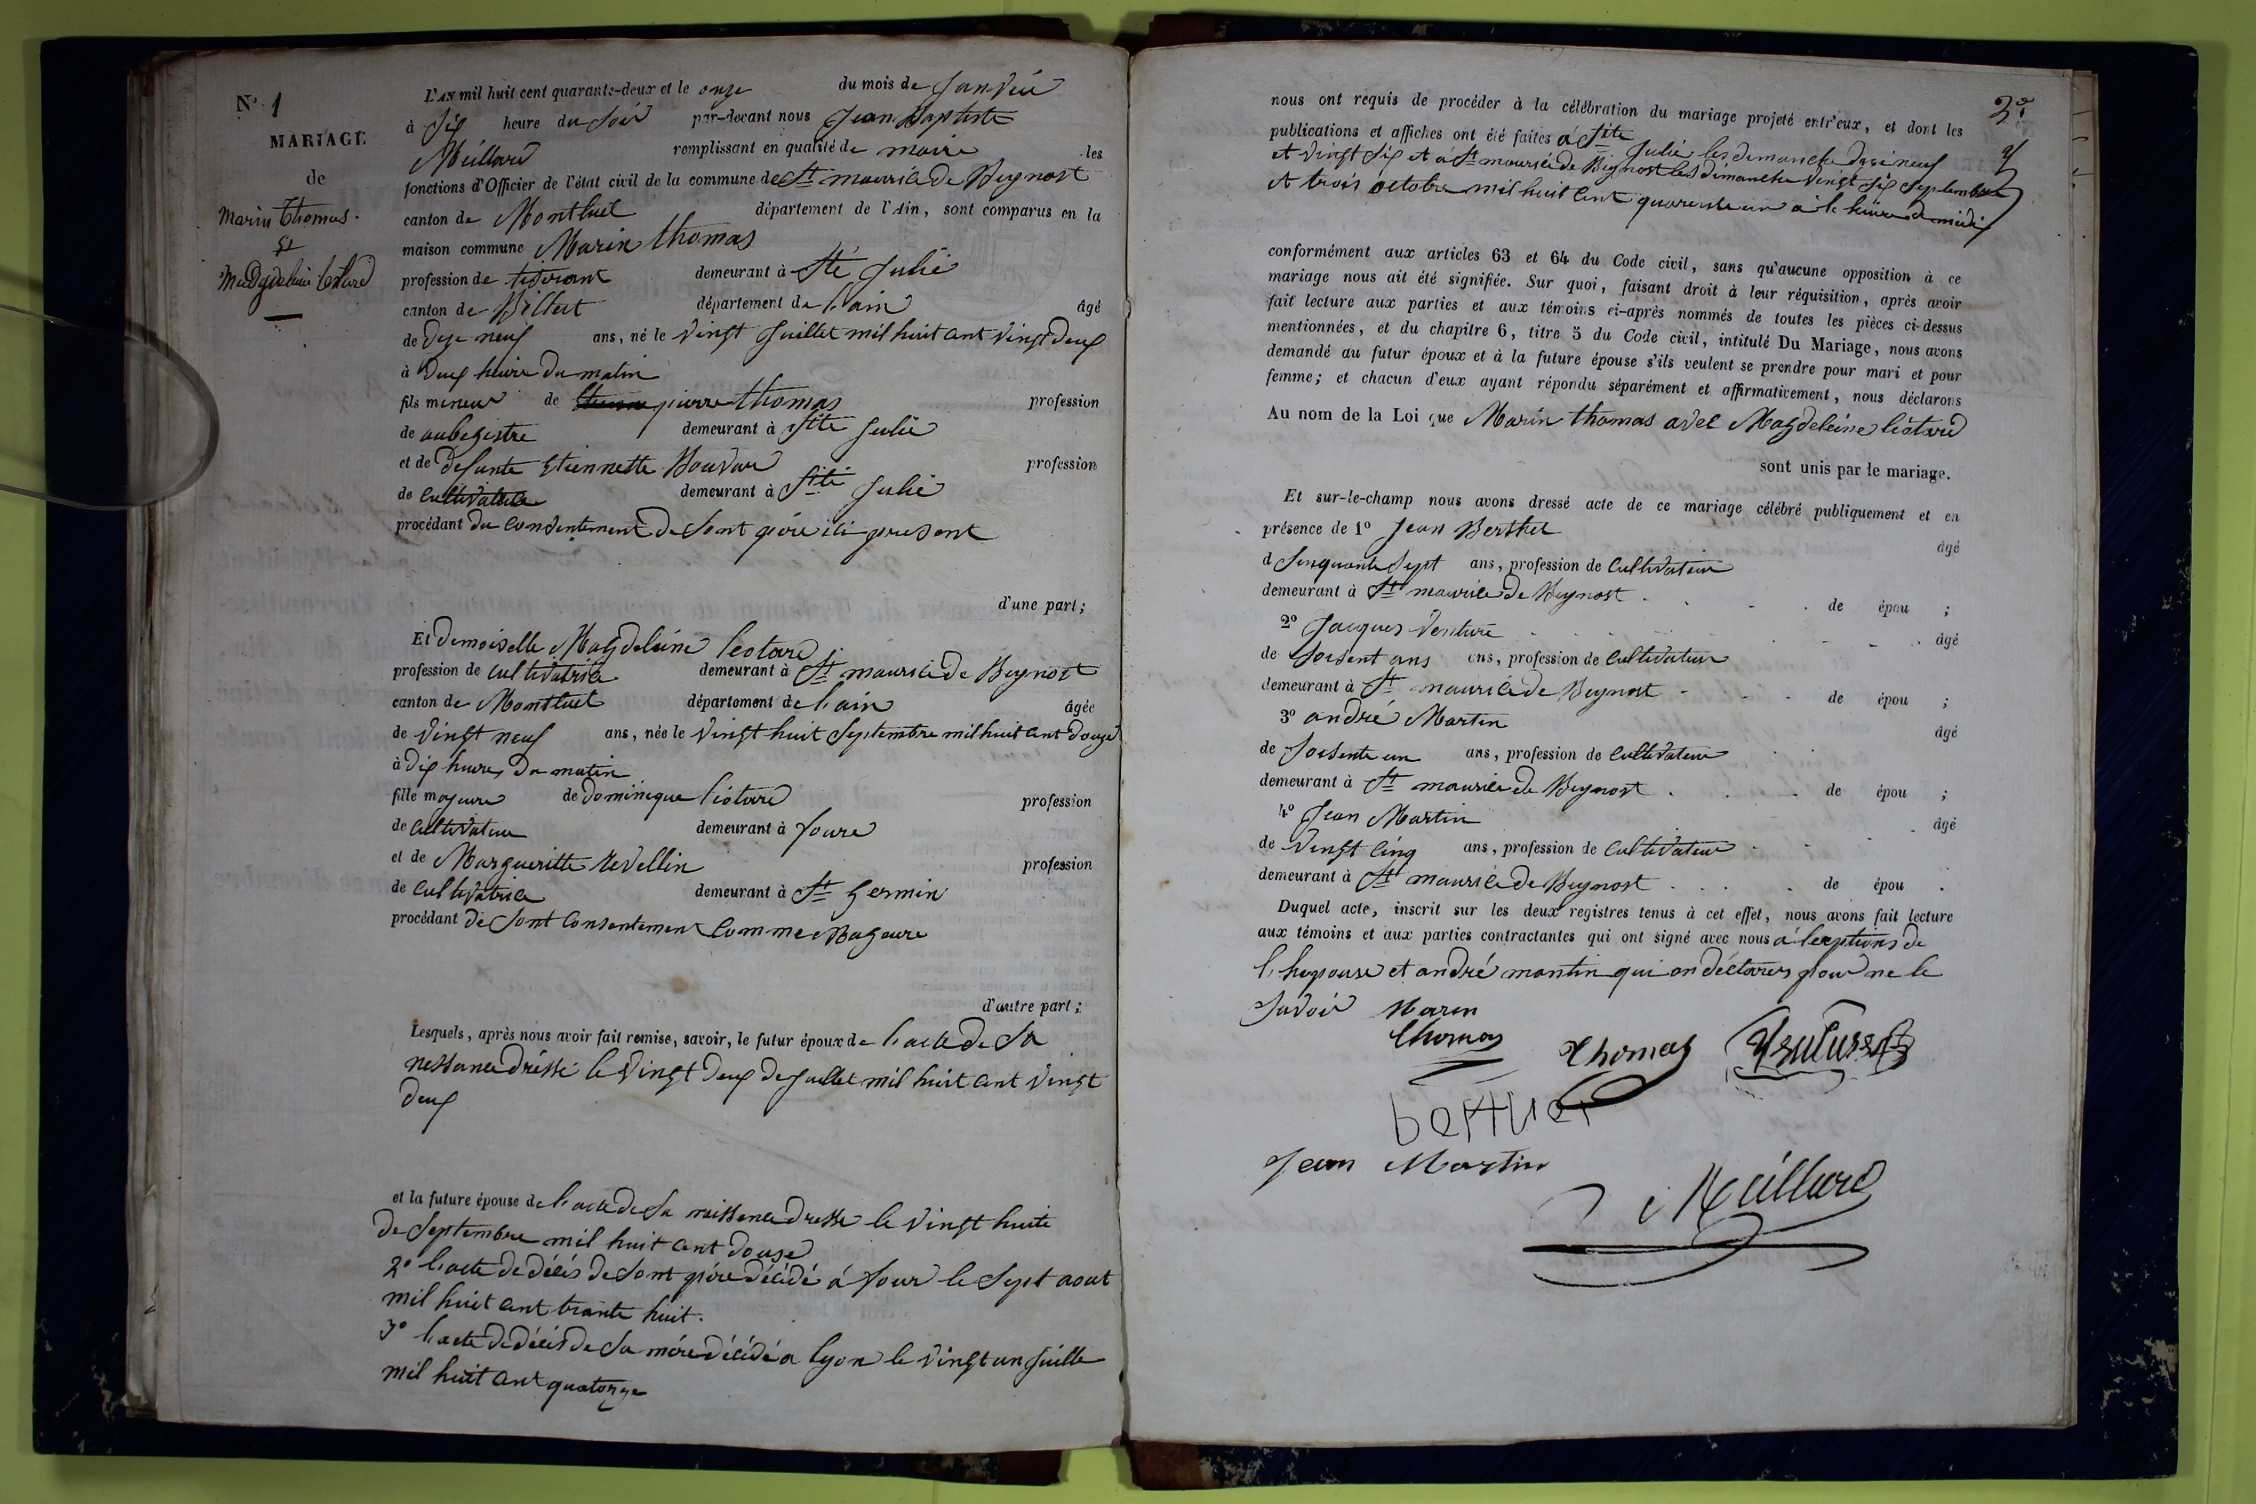 N.º 1
MARIAGE
de
Marin Thomas.
Et
Magdeleine Léotard
L'AN mil huit cent quarante-deux et le onze du mois de Janvié
à Six heure du Soir par-devant nous Jean Baptiste
Meillard remplissant en qualité de maire les
fonctions d'Officier de l'état civil de la commune de St maurice De Beynost
canton de Montluel département de l'Ain, sont comparus en la
maison commune Marin thomas
profession de tisserant demeurant à Ste Julie
canton de département de l'ain âgé
de Dize neuf ans, né le vingt Juillet mil huit cent vingt Deux
à Deux heure Du matin
fils mineur de pierre thomas profession
de aubegistre demeurant à Ste Julie
et de Defunte Etiennette Bouvar profession
de Cultivatrice demeurant à Ste Julie
procédant Du Consentement De Sont père ici present
d'une part;
Et Demoiselle Magdeleine léotard
profession de Cultivatrice demeurant à St maurice De Beynost
canton de Montluel département de l'ain âgée
de vingt neuf ans, née le vingt huit Septembre mil huit cent Douze
à Dix heures Du matin
fille majeure de Dominique léotard profession
de Cultivateur demeurant à
et de Margueritte Revellin profession
de Cultivatrice demeurant à St Germin
procédant de Sont Consentement Comme Mageure
d'autre part;
Lesquels, après nous avoir fait remise, savoir, le futur époux de l'acte De Sa
nessance Dréssé le vingt Deux De Juillet mil huit cent vingt
Deux
et la future épouse de l'acte De Sa naissence Dressé le vingt huite
De Septembre mil huit cent Douze
2º l'acte De décés De Sont père Décédé á Jour le Sept aout
mil huit cent trante huit.
3º l'acte De décés De Sa mére Décédé a lyon le vingt un Juille
mil huit cent quatorze
2e
nous ont requis de procéder à la célébration du mariage projeté entr'eux, et dont les
publications et affiches ont été faites á Ste Julie les Demanche Dixe neuf
et vingt Six et á St maurice De Beynost les Dimanche vingt Six Septembre
et trois octobre mil huit cent quarente un a l'heure De midi
conformément aux articles 63 et 64 du Code civil, sans qu'aucune opposition à ce
mariage nous ait été signifiée. Sur quoi, faisant droit à leur réquisition, après avoir
fait lecture aux parties et aux témoins ci-après nommés de toutes les pièces ci-dessus
mentionnées, et du chapitre 6, titre 5 du Code civil, intitulé Du Mariage, nous avons
demandé au futur époux et à la future épouse s'ils veulent se prendre pour mari et pour
femme; et chacun d'eux ayant répondu séparément et affirmativement, nous déclarons
Au nom de la Loi que Marin thomas avec Magdeleine léotard
sont unis par le mariage.
Et sur-le-champ nous avons dressé acte de ce mariage célébré publiquement et en
présence de 1º Jean Berthet âgé
d Sinquante Sept ans, profession de Cultivateur
demeurant à St maurice De Beynost de épou ;
2º Jacques Venture âgé
de Soisent ans ans, profession de Cultivateur
demeurant à St maurice De Beynost de épou ;
3º andré Martin âgé
de Soisente un ans, profession de Cultivateur
demeurant à St maurice De Beynost de épou ;
4º Jean Martin âgé
de vingt Cinq ans, profession de Cultivateur
demeurant à St maurice De Beynost de épou .
Duquel acte, inscrit sur les deux registres tenus à cet effet, nous avons fait lecture
aux témoins et aux parties contractantes qui ont signé avec nous á l'exptions De
l'hepouse et andré martin qui on déclares pour ne le
Savoir Marin
thomas Thomas Venture
berthet
Jean Martin
Meillard